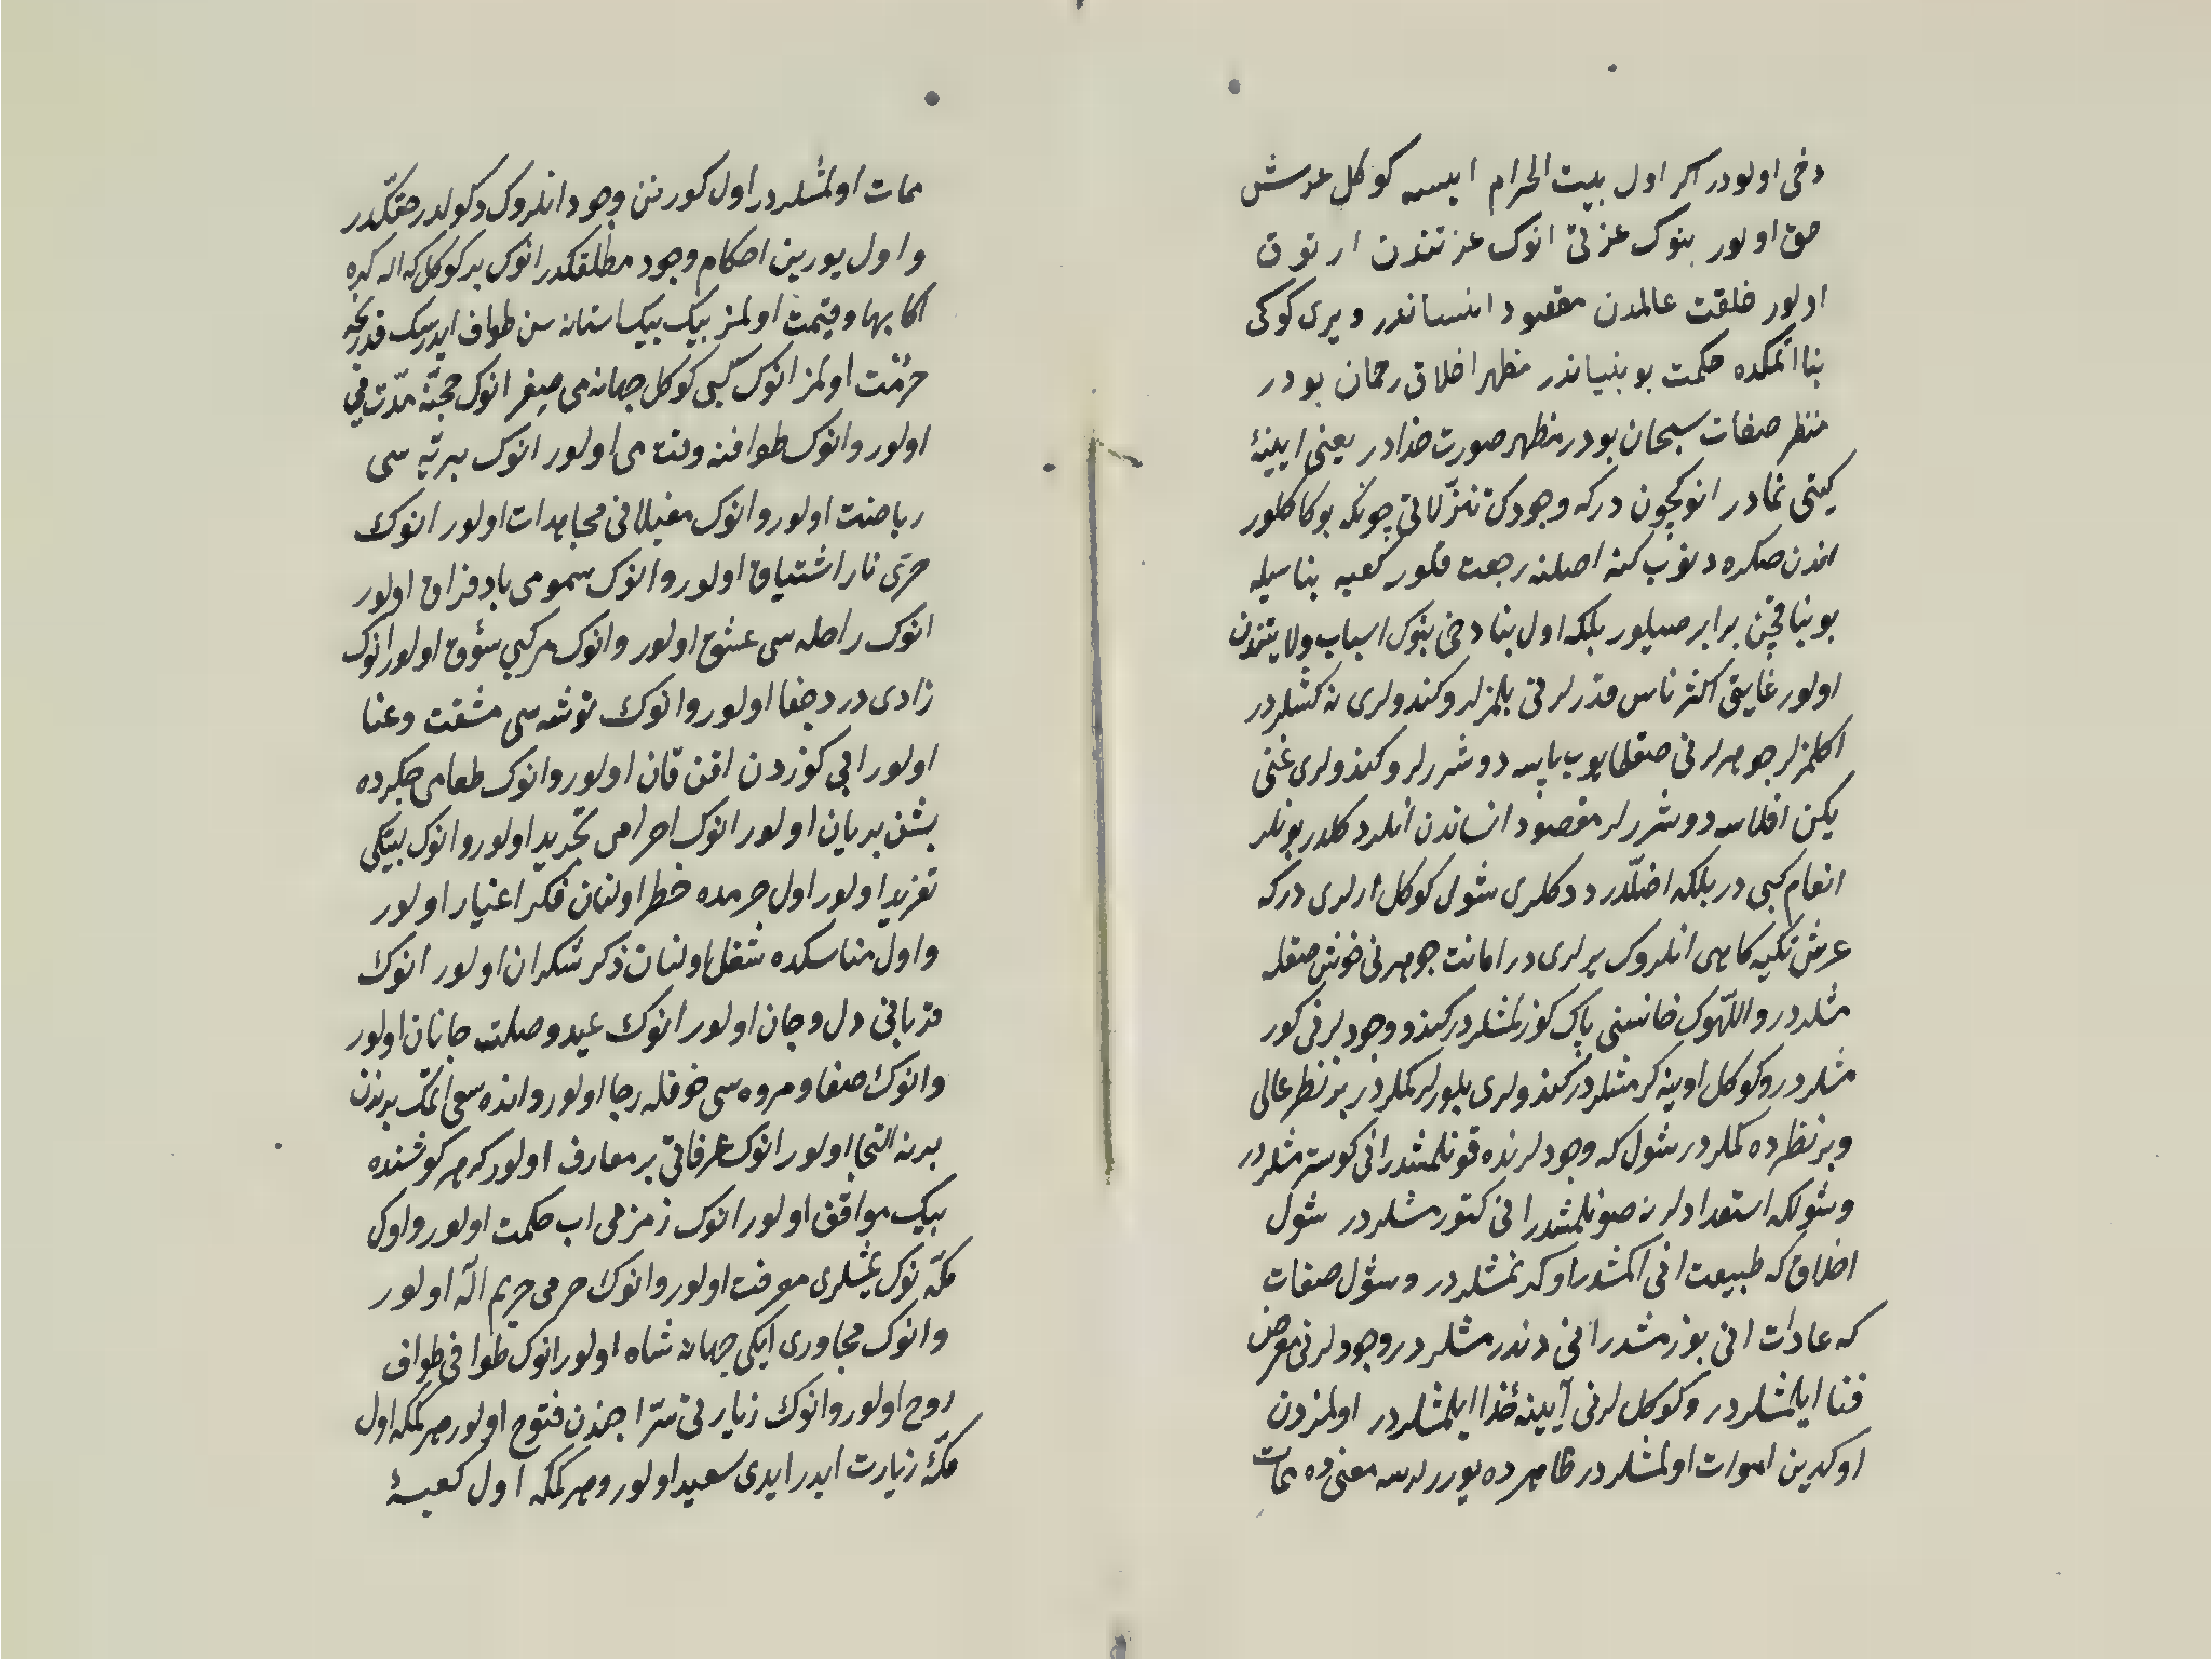 دخی اولودر اکر اول بیت الحرام ایسه کوکل عرش
حق اولور بنوک عزتی انوک عزتندن ارتوق
اولور خلقت عالمدن مقصود انساندر ویری کوکی
بنا اتمکده حکمت بو بنیاندر مظهر اخلاق رحمان بودر
منظر صفات سبحان بودر مظهر صورت خدادر یعنی ایینهٔ
کیتی نمادر انوکچون درکه وجودک تنزّلاتی چونکه بوکا کلور
اندن صکره دونوب کنه اصلنه رجعت قلور کعبه بناسیله
بو بنا قچن برابر صیلور بلکه اول بنا دخی بنوک اسباب ولایتندن
اولور غایتی اکثر ناس قدرلرنی بلمزلر وکندولری نه کشلردر
اکلمزلر جوهرلرنی صقلمایوب یاسه دوشررلر وکندولری غنی
یکن افلاسه دوشررلر مقصود انساندن انلر دکلدر بونلر
انعام کبی در بلکه اضلّدر ددکلری شول کوکل ارلری درکه
عرش تکیه کاهی انلروک یرلری در امانت جوهرنی خوش صقله
مشلردر واللّهوک خانه‌سنی پاک کوزلمشلردر کندو وجودلرنی کور
مشلردر وکوکل اوینه کرمشلردر کندولری بلورلر کملردر بر نظر عالی
وبر نظرده کملردر شول که وجودلرنده قونلمشدر انی کوسترمشلردر
وشولکه استعدادلرنه صونلمشدر انی کتورمشلردر شول
اخلاق که طبیعت انی اکمشدر اوکرنمشلردر وشول صفات
که عادات انی بوزمشدر انی دوندرمشلردر وجودلرنی معرض
فنا ایلمشلردر وکوکل لرنی آیینهٔ خدا ایلمشلردر اولمزدن
اوکدین اموات اولمشلردر ظاهرده یوررلرسه معنی ده ممات
ممات اولمشلردر اول کورنن وجود انلروک دکولدر حقّکدر
واول یورین احکام وجود مطلقکدر انوک بر کوکل که اله کیره
اکا بها وقیمت اولمز بیک بیک استانه سن طواف ایدرسک قدرنجه
حرمت اولمز انوک کبی کوکل جهانه می صیغر انوک حجّنه مدّت می
اولور وانوک طوافنه وقت می اولور انوک بریّه سی
ریاضت اولور وانوک مغیلانی مجاهدات اولور انوک
حرّی نار اشتیاق اولور وانوک سمومی باد فراق اولور
انوک راحله سی عشق اولور وانوک مرکبی شوق اولور انوک
زادی درد وجفا اولور وانوک توشه سی مشقت وعنا
اولور ابی کوزدن اقن قان اولور وانوک طعامی جکرده
بشن بریان اولور انوک احرامی تجرید اولور وانوک لبیّکی
تفرید اولور اول حرمده خطر اولنان فکر اغیار اولور
واول مناسکده شغل اولنان ذکر شکران اولور انوک
قربانی دل وجان اولور انوک عید وصلت جانان اولور
وانوک صفا ومروه سی خوفله رجا اولور وانده سعی اتمک برندن
برنه التجا اولور انوک عرفاتی بر معارف اولور که هر کوشنده
بیک مواقف اولور انوک زمزمی اب حکمت اولور واول
مکّه نوک یمشلری معرفت اولور وانوک حرمی حریم الٓه اولور
وانوک مجاوری ایکی جهانه شاه اولور انوک طوافی طواف
روح اولور وانوک زیارتی سرّا جندن فتوح اولور هر کمکه اول
مکّهٔ زیارت ایدر ایدی سعید اولور وهر کمکه اول کعبهٔ